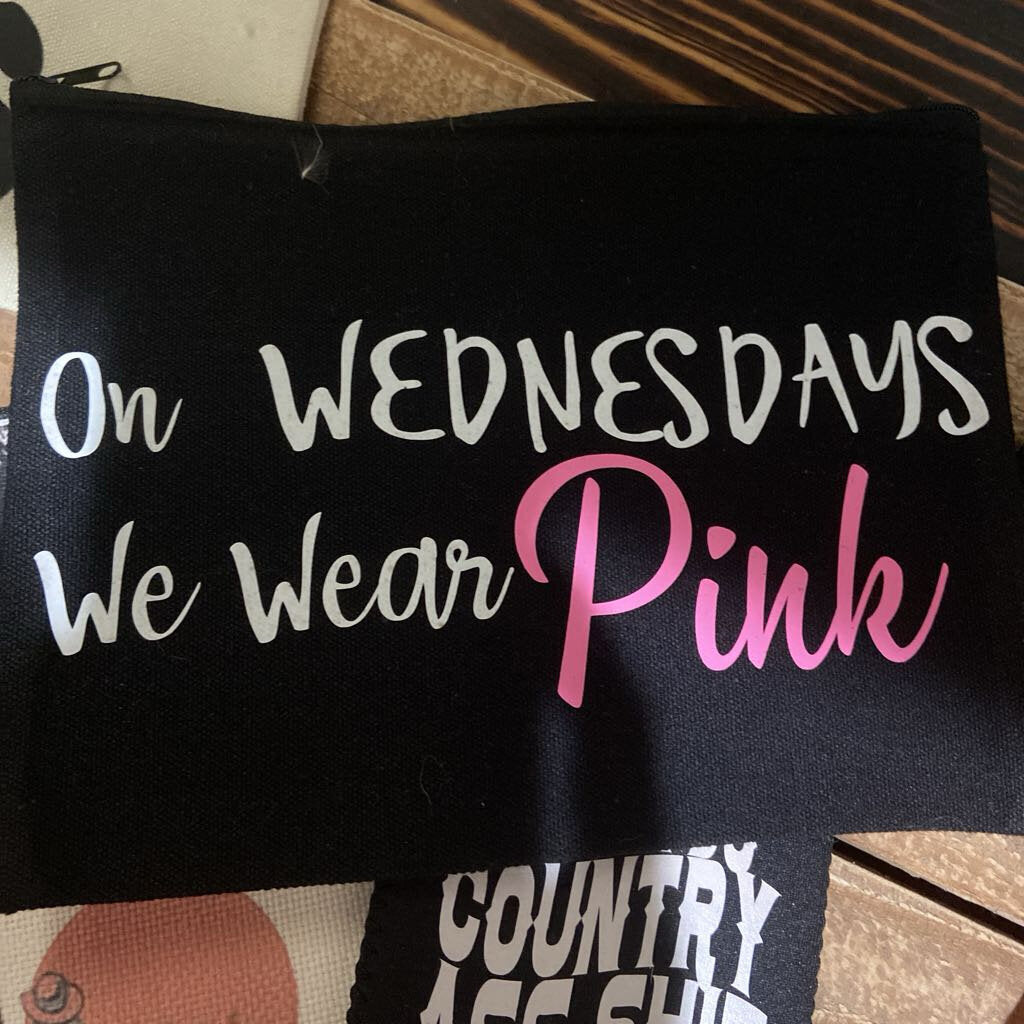 On WEDNESDAYS
We Wear Pink
COUNTRY